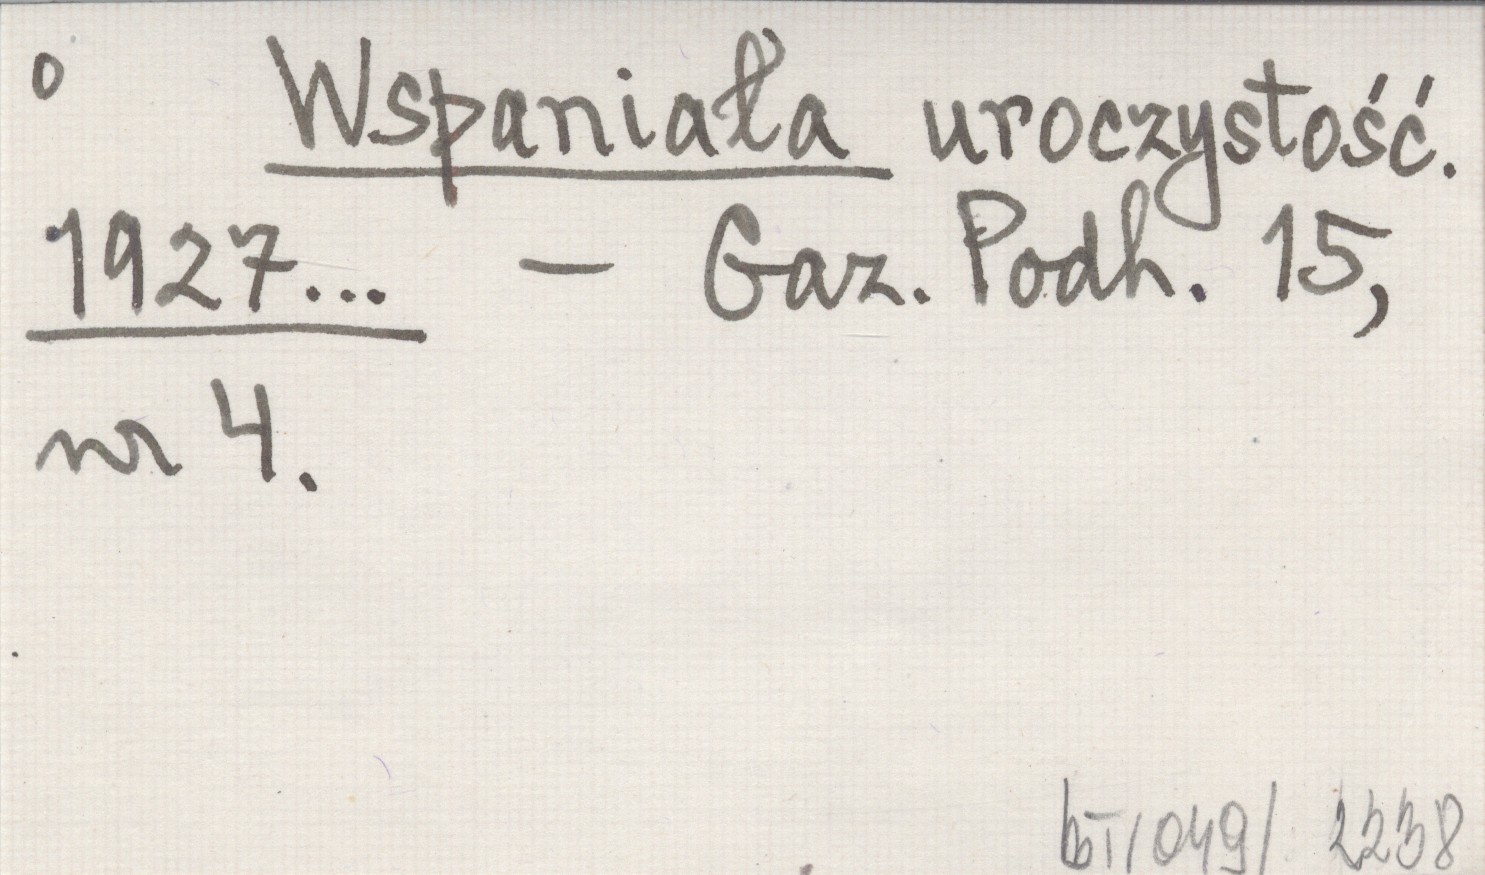 o Wspaniała uroczystość.
1927... – Gaz. Podh. 15,
nr 4.
bT/049/ 2238